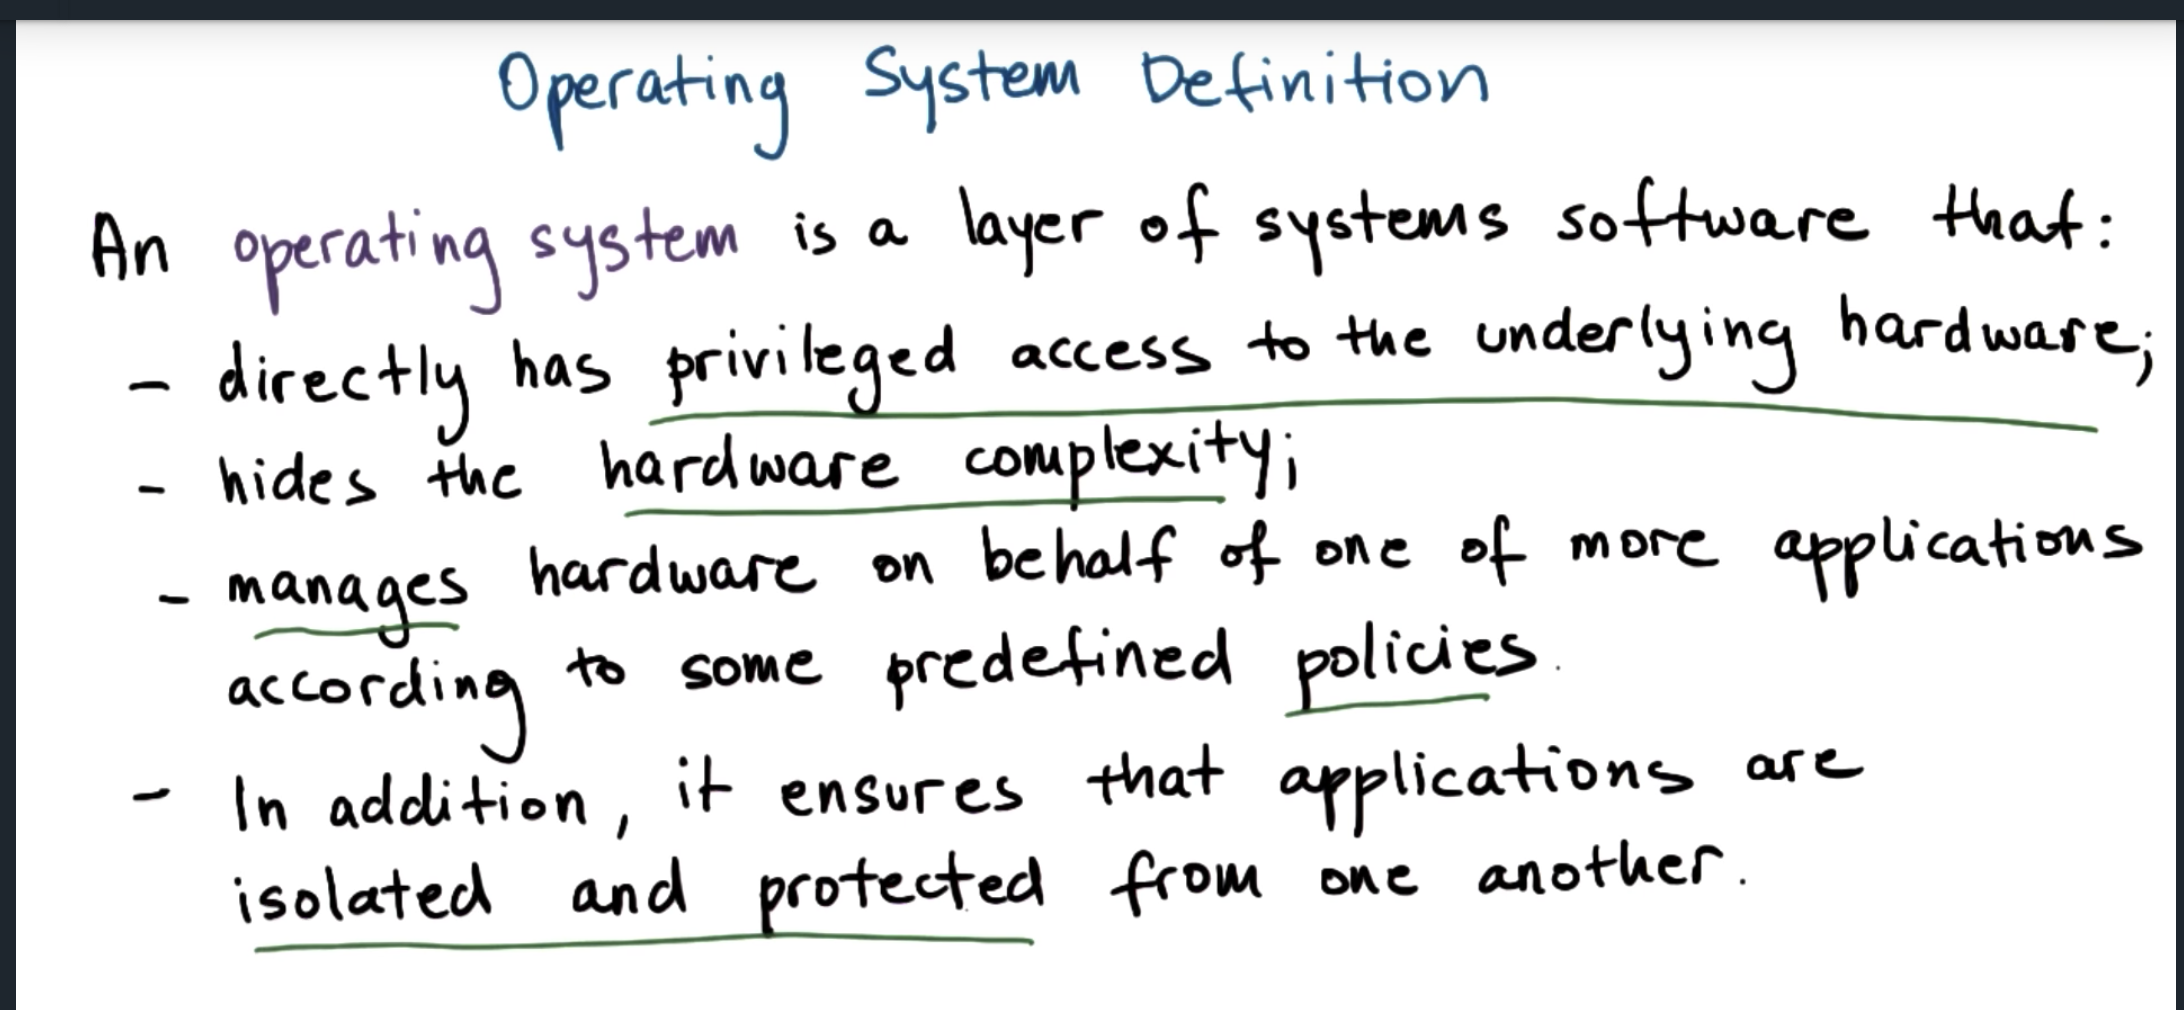 Operating System Definition
An operating system is a layer of systems software that:
- directly has privileged access to the underlying hardware;
- hides the hardware complexity;
- manages hardware on behalf of one of more applications
according to some predefined policies.
- In addition, it ensures that applications are
isolated and protected from one another.